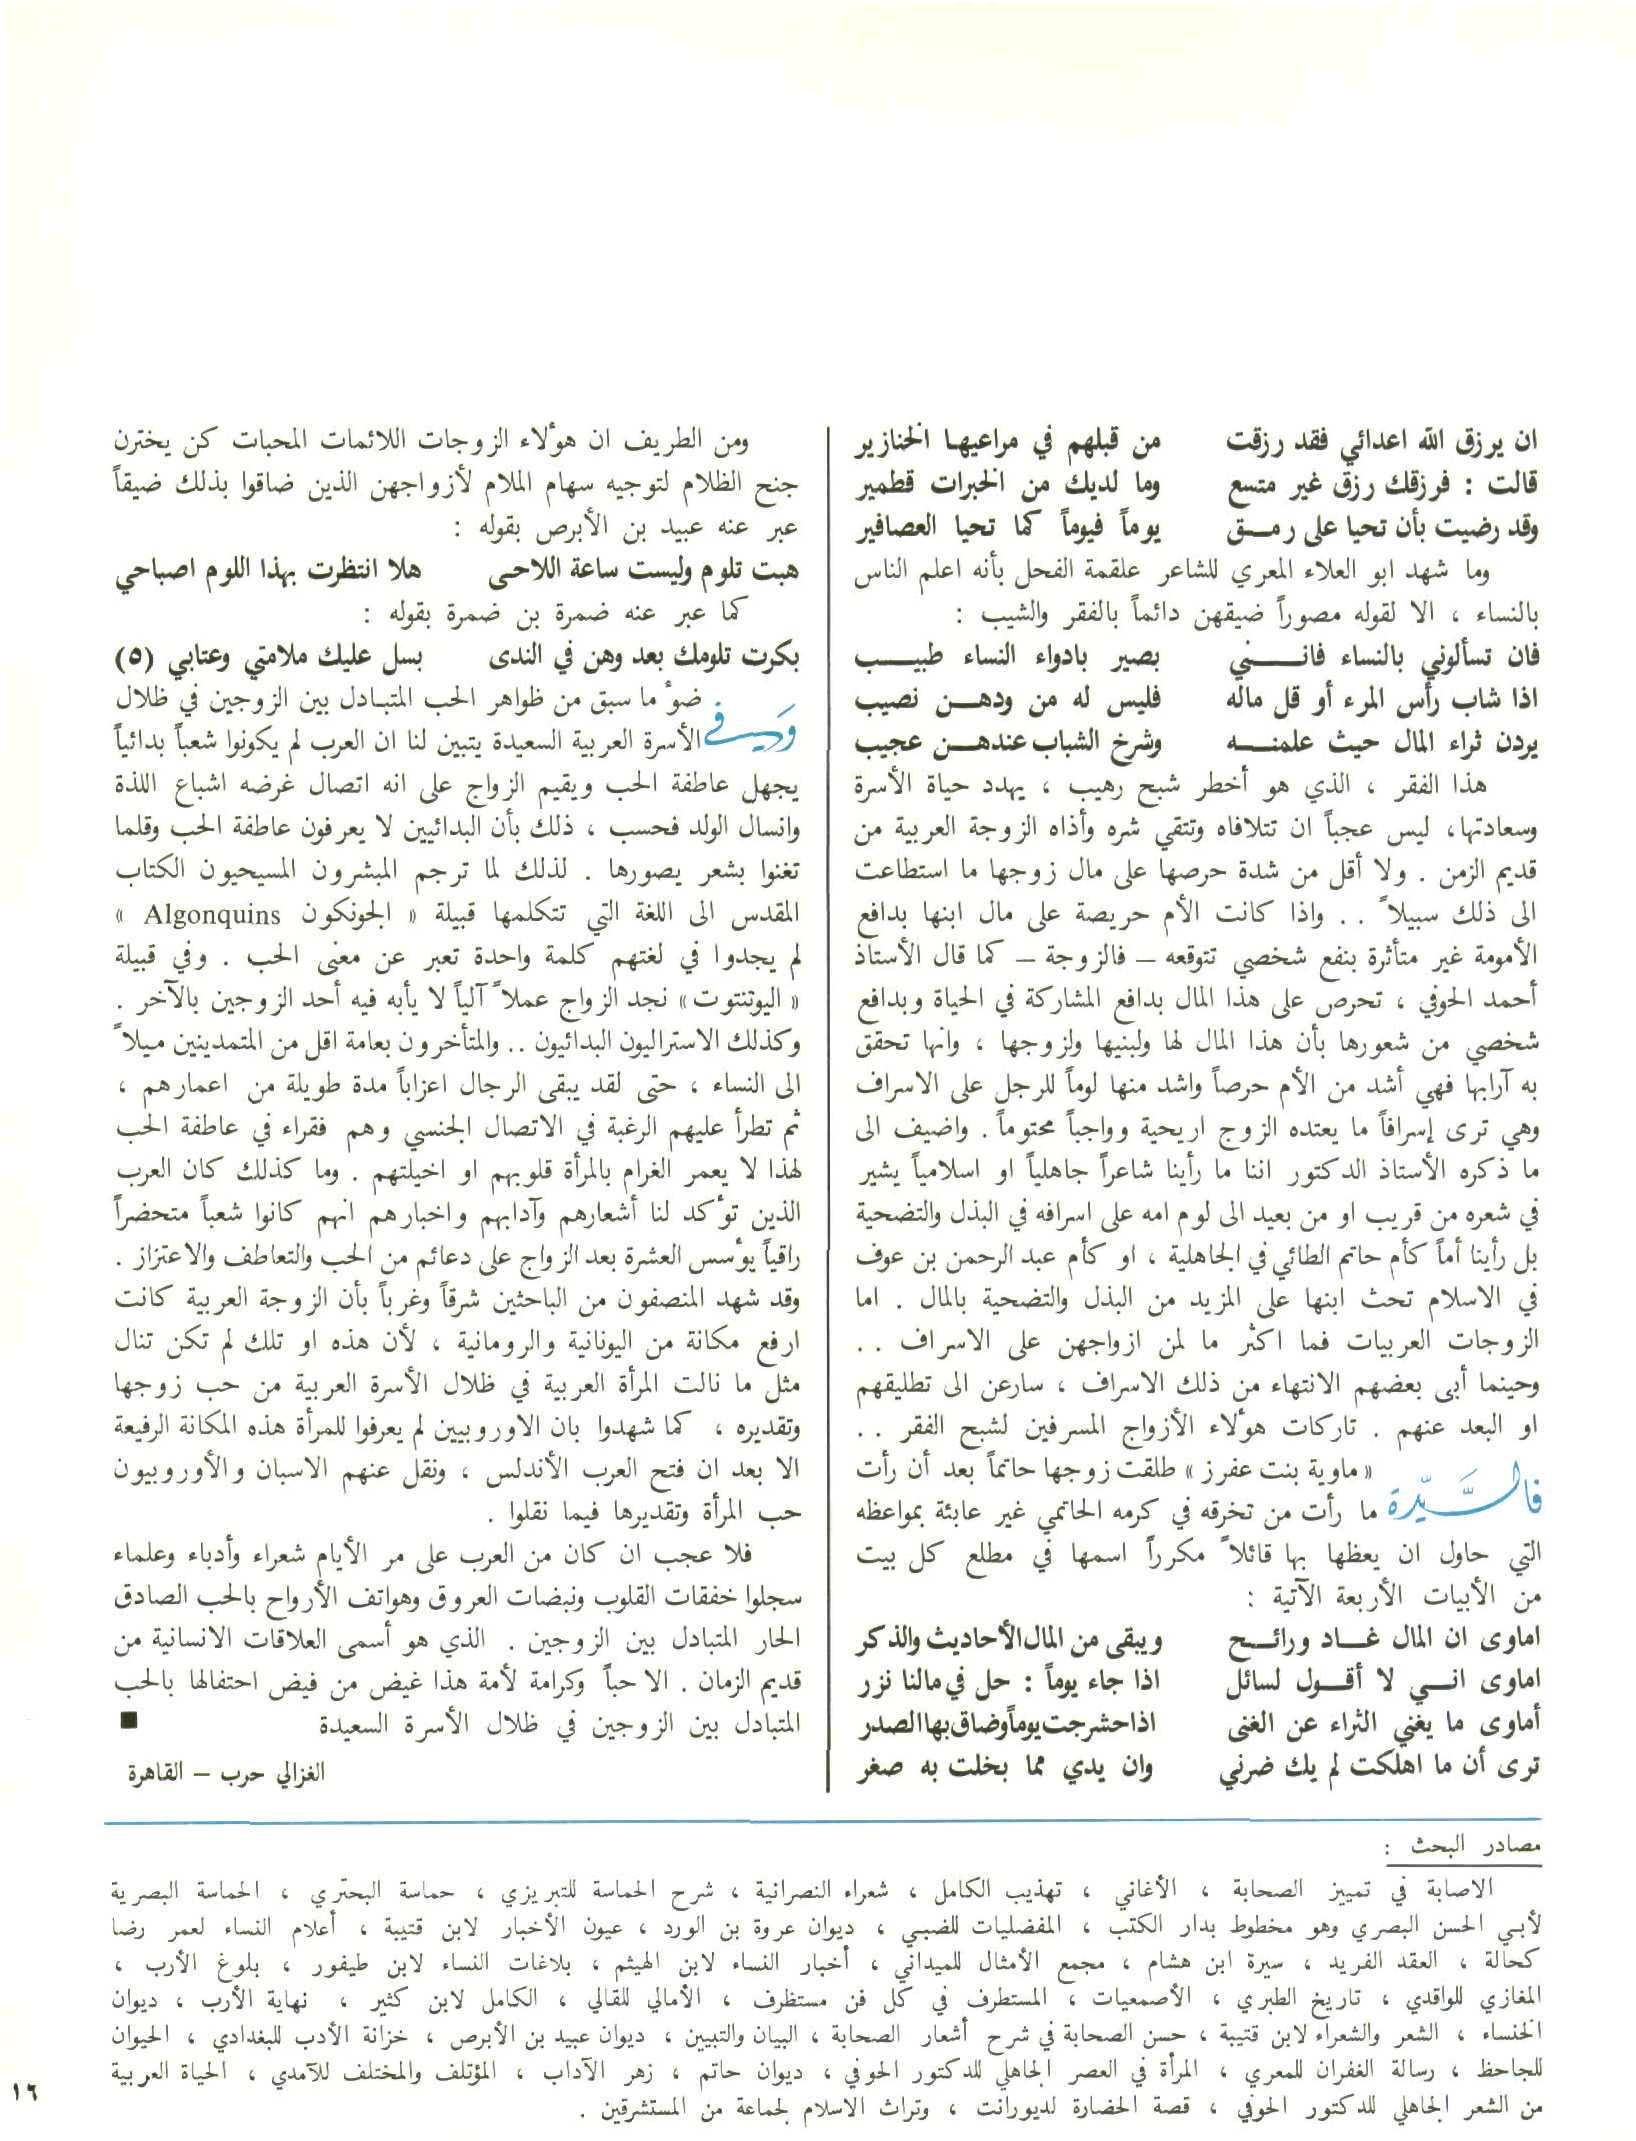 ان يرزق الله اعدائي فقد رزقت من قبلهم في مراعيها الخنازير
قالت : فرزقك رزق غير متسع وما لديك من الخيرات قطمير
وقد رضيت بأن تحيا على رمــق يوماً فيوماً كما تحيا العصافير
وما شهد ابو العلاء المعري للشاعر علقمة الفحل بأنه اعلم الناس
بالنساء ، الا لقوله مصوراً ضيقهن دائماً بالفقر والشيب :
فان تسألوني بالنساء فانــــني بصير بادواء النساء طبيـــب
اذا شاب رأس المرء أو قل ماله فليس له من ودهــن نصيب
يردن ثراء المال حيث علمنــــه وشرخ الشباب عندهــن عجيب
هذا الفقر ، الذي هو أخطر شبح رهيب ، يهدد حياة الأسرة
وسعادتها، ليس عجباً ان تتلافاه وتتقي شره وأذاه الزوجة العربية من
قديم الزمن . ولا أقل من شدة حرصها على مال زوجها ما استطاعت
الى ذلك سبيلاً .. واذا كانت الأم حريصة على مال ابنها بدافع
الأمومة غير متأثرة بنفع شخصي تتوقعه – فالزوجة – كما قال الأستاذ
أحمد الحوفي ، تحرص على هذا المال بدافع المشاركة في الحياة وبدافع
شخصي من شعورها بأن هذا المال لها ولبنيها ولزوجها ، وانها تحقق
به آرابها فهي أشد من الأم حرصاً واشد منها لوماً للرجل على الاسراف
وهي ترى إسرافاً ما يعتده الزوج اريحية وواجباً محتوماً . واضيف الى
ما ذكره الأستاذ الدكتور اننا ما رأينا شاعراً جاهلياً او اسلامياً يشير
في شعره من قريب او من بعيد الى لوم امه على اسرافه في البذل والتضحية
بل رأينا أماً كأم حاتم الطائي في الجاهلية ، او كأم عبد الرحمن بن عوف
في الاسلام تحث ابنها على المزيد من البذل والتضحية بالمال . اما
الزوجات العربيات فما اكثر ما لمن ازواجهن على الاسراف ..
وحينما أبى بعضهم الانتهاء من ذلك الاسراف ، سارعن الى تطليقهم
او البعد عنهم . تاركات هؤلاء الأزواج المسرفين لشبح الفقر ..
فالسَّيّدة « ماوية بنت عفرز » طلقت زوجها حاتماً بعد أن رأت
ما رأت من تخرقه في كرمه الحاتمي غير عابئة بمواعظه
التي حاول ان يعظها بها قائلاً مكرراً اسمها في مطلع كل بيت
من الأبيات الأربعة الآتية :
اماوى ان المال غـــاد ورائــح ويبقى من المال الأحاديث والذكر
اماوى انــي لا أقــول لسائل اذا جاء يوماً : حل في مالنا نزر
أماوى ما يغني الثراء عن الغنى اذا حشرجت يوماً وضاق بها الصدر
ترى أن ما اهلكت لم يك ضرني وان يدي مما بخلت به صغر
ومن الطريف ان هؤلاء الزوجات اللائمات المحبات كن يخترن
جنح الظلام لتوجيه سهام الملام لأزواجهن الذين ضاقوا بذلك ضيقاً
عبر عنه عبيد بن الأبرص بقوله :
هبت تلوم وليست ساعة اللاحى هلا انتظرت بهذا اللوم اصباحي
كما عبر عنه ضمرة بن ضمرة بقوله :
بكرت تلومك بعد وهن في الندى بسل عليك ملامتي وعتابي (٥)
وَفي ضوء ما سبق من ظواهر الحب المتبادل بين الزوجين في ظلال
الأسرة العربية السعيدة يتبين لنا ان العرب لم يكونوا شعباً بدائياً
يجهل عاطفة الحب ويقيم الزواج على انه اتصال غرضه اشباع اللذة
وانسال الولد فحسب ، ذلك بأن البدائيين لا يعرفون عاطفة الحب وقلما
تغنوا بشعر يصورها . لذلك لما ترجم المبشرون المسيحيون الكتاب
المقدس الى اللغة التي تتكلمها قبيلة « الجونكون Algonquins »
لم يجدوا في لغتهم كلمة واحدة تعبر عن معنى الحب . وفي قبيلة
« اليوتنتوت » نجد الزواج عملاً آلياً لا يأبه فيه أحد الزوجين بالآخر .
وكذلك الاستراليون البدائيون .. والمتأخرون بعامة اقل من المتمدينين ميلاً
الى النساء ، حتى لقد يبقى الرجال اعزاباً مدة طويلة من اعمارهم ،
ثم تطرأ عليهم الرغبة في الاتصال الجنسي وهم فقراء في عاطفة الحب
لهذا لا يعمر الغرام بالمرأة قلوبهم او اخيلتهم . وما كذلك كان العرب
الذين تؤكد لنا أشعارهم وآدابهم واخبارهم انهم كانوا شعباً متحضراً
راقياً يؤسس العشرة بعد الزواج على دعائم من الحب والتعاطف والاعتزاز .
وقد شهد المنصفون من الباحثين شرقاً وغرباً بأن الزوجة العربية كانت
ارفع مكانة من اليونانية والرومانية ، لأن هذه او تلك لم تكن تنال
مثل ما نالت المرأة العربية في ظلال الأسرة العربية من حب زوجها
وتقديره ، كما شهدوا بان الاوروبيين لم يعرفوا للمرأة هذه المكانة الرفيعة
الا بعد ان فتح العرب الأندلس ، ونقل عنهم الاسبان والأوروبيون
حب المرأة وتقديرها فيما نقلوا .
فلا عجب ان كان من العرب على مر الأيام شعراء وأدباء وعلماء
سجلوا خفقات القلوب ونبضات العروق وهواتف الأرواح بالحب الصادق
الحار المتبادل بين الزوجين . الذي هو أسمى العلاقات الانسانية من
قديم الزمان . الا حباً وكرامة لأمة هذا غيض من فيض احتفالها بالحب
المتبادل بين الزوجين في ظلال الأسرة السعيدة ■
الغزالي حرب – القاهرة
مصادر البحث :
الاصابة في تمييز الصحابة ، الأغاني ، تهذيب الكامل ، شعراء النصرانية ، شرح الحماسة للتبريزي ، حماسة البحتري ، الحماسة البصرية
لأبي الحسن البصري وهو مخطوط بدار الكتب ، المفضليات للضبي ، ديوان عروة بن الورد ، عيون الأخبار لابن قتيبة ، أعلام النساء لعمر رضا
كحالة ، العقد الفريد ، سيرة ابن هشام ، مجمع الأمثال للميداني ، أخبار النساء لابن الهيثم ، بلاغات النساء لابن طيفور ، بلوغ الأرب ،
المغازي للواقدي ، تاريخ الطبري ، الأصمعيات ، المستطرف في كل فن مستظرف ، الأمالي للقالي ، الكامل لابن كثير ، نهاية الأرب ، ديوان
الخنساء ، الشعر والشعراء لابن قتيبة ، حسن الصحابة في شرح أشعار الصحابة ، البيان والتبيين ، ديوان عبيد بن الأبرص ، خزانة الأدب للبغدادي ، الحيوان
للجاحظ ، رسالة الغفران للمعري ، المرأة في العصر الجاهلي للدكتور الحوفي ، ديوان حاتم ، زهر الآداب ، المؤتلف والمختلف للآمدي ، الحياة العربية
من الشعر الجاهلي للدكتور الحوفي ، قصة الحضارة لديورانت ، وتراث الاسلام لجماعة من المستشرقين .
١٦